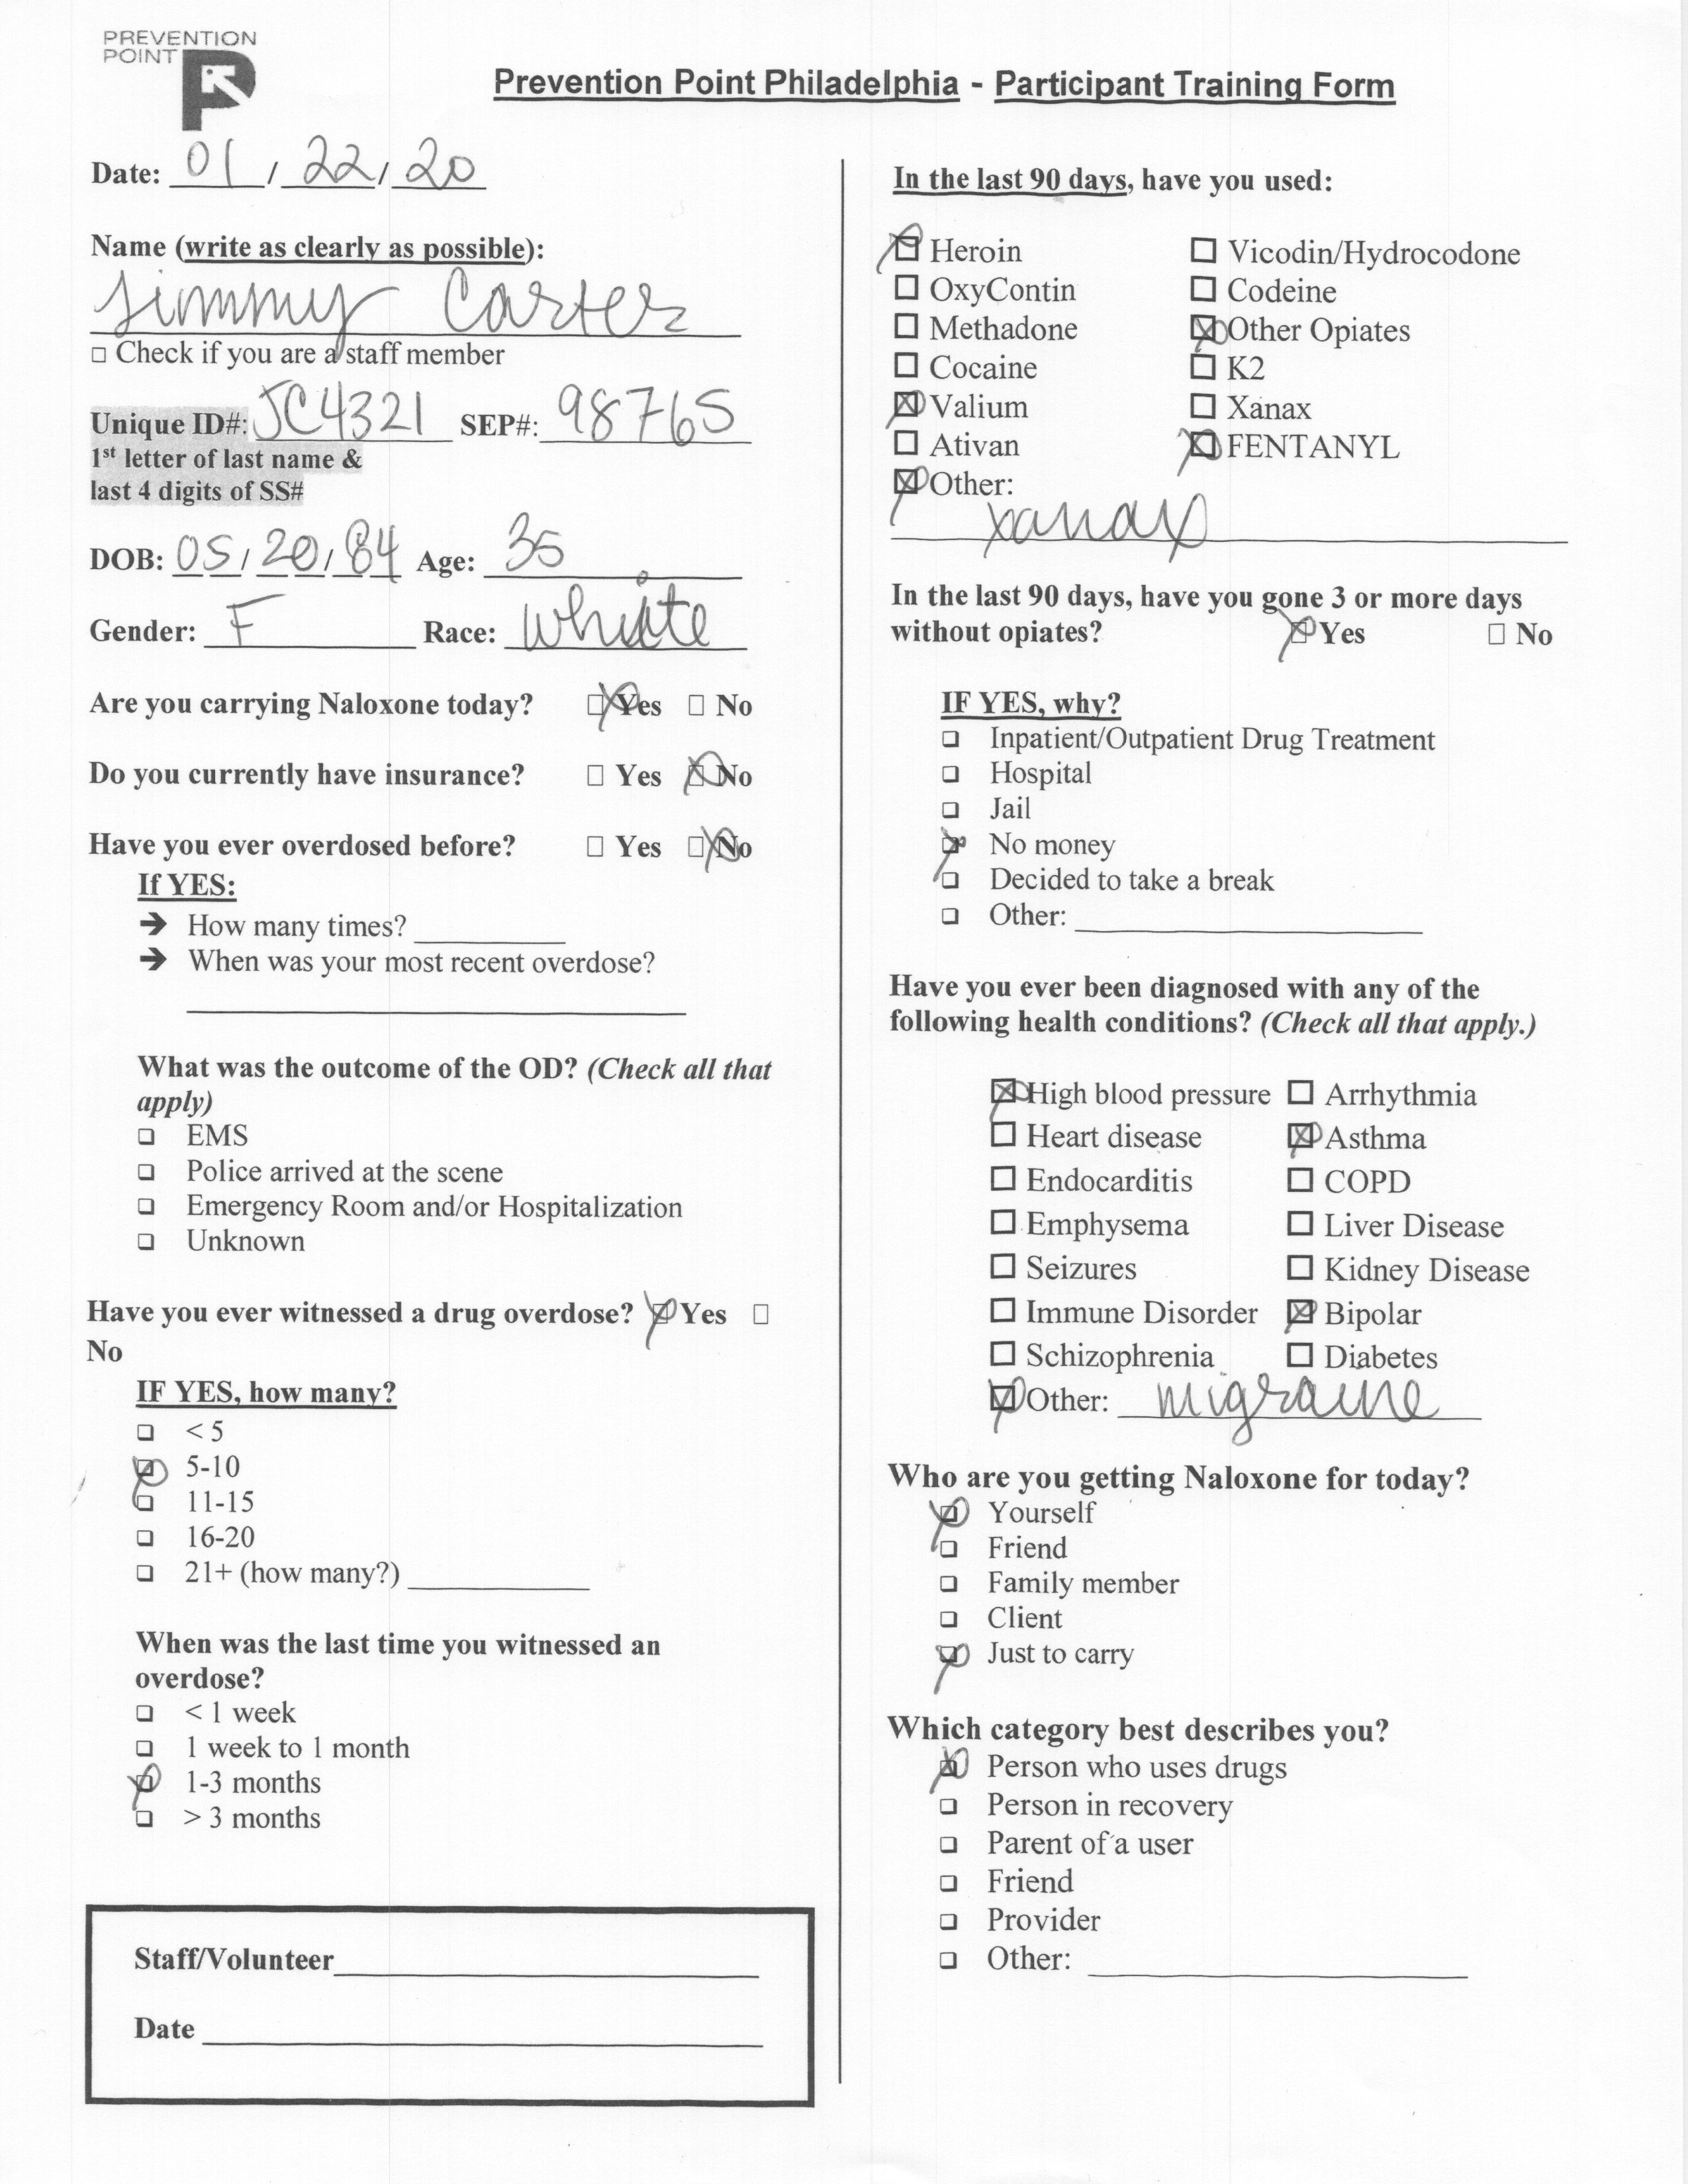 PREVENTION
POINT
Prevention Point Philadelphia - Participant Training Form
Date: 01 / 22 / 20
Name (write as clearly as possible):
Jimmy Carter
☐ Check if you are a staff member
Unique ID#: JC4321 SEP#: 98765
1st letter of last name &
last 4 digits of SS#
DOB: 05 / 20 / 84 Age: 35
Gender: F Race: White
Are you carrying Naloxone today? ☒ Yes ☐ No
Do you currently have insurance? ☐ Yes ☒ No
Have you ever overdosed before? ☐ Yes ☒ No
If YES:
➔ How many times? ____
➔ When was your most recent overdose?
What was the outcome of the OD? (Check all that
apply)
☐ EMS
☐ Police arrived at the scene
☐ Emergency Room and/or Hospitalization
☐ Unknown
Have you ever witnessed a drug overdose? ☒ Yes ☐
No
IF YES, how many?
☐ < 5
☒ 5-10
☐ 11-15
☐ 16-20
☐ 21+ (how many?) ____
When was the last time you witnessed an
overdose?
☐ < 1 week
☐ 1 week to 1 month
☒ 1-3 months
☐ > 3 months
Staff/Volunteer____
Date ____
In the last 90 days, have you used:
☒ Heroin ☐ Vicodin/Hydrocodone
☐ OxyContin ☐ Codeine
☐ Methadone ☒ Other Opiates
☐ Cocaine ☐ K2
☒ Valium ☐ Xanax
☐ Ativan ☒ FENTANYL
☒ Other:
xanax
In the last 90 days, have you gone 3 or more days
without opiates? ☒ Yes ☐ No
IF YES, why?
☐ Inpatient/Outpatient Drug Treatment
☐ Hospital
☐ Jail
☒ No money
☐ Decided to take a break
☐ Other: ____
Have you ever been diagnosed with any of the
following health conditions? (Check all that apply.)
☒ High blood pressure ☐ Arrhythmia
☐ Heart disease ☒ Asthma
☐ Endocarditis ☐ COPD
☐ Emphysema ☐ Liver Disease
☐ Seizures ☐ Kidney Disease
☐ Immune Disorder ☒ Bipolar
☐ Schizophrenia ☐ Diabetes
☒ Other: migraine
Who are you getting Naloxone for today?
☒ Yourself
☐ Friend
☐ Family member
☐ Client
☒ Just to carry
Which category best describes you?
☒ Person who uses drugs
☐ Person in recovery
☐ Parent of a user
☐ Friend
☐ Provider
☐ Other: ____